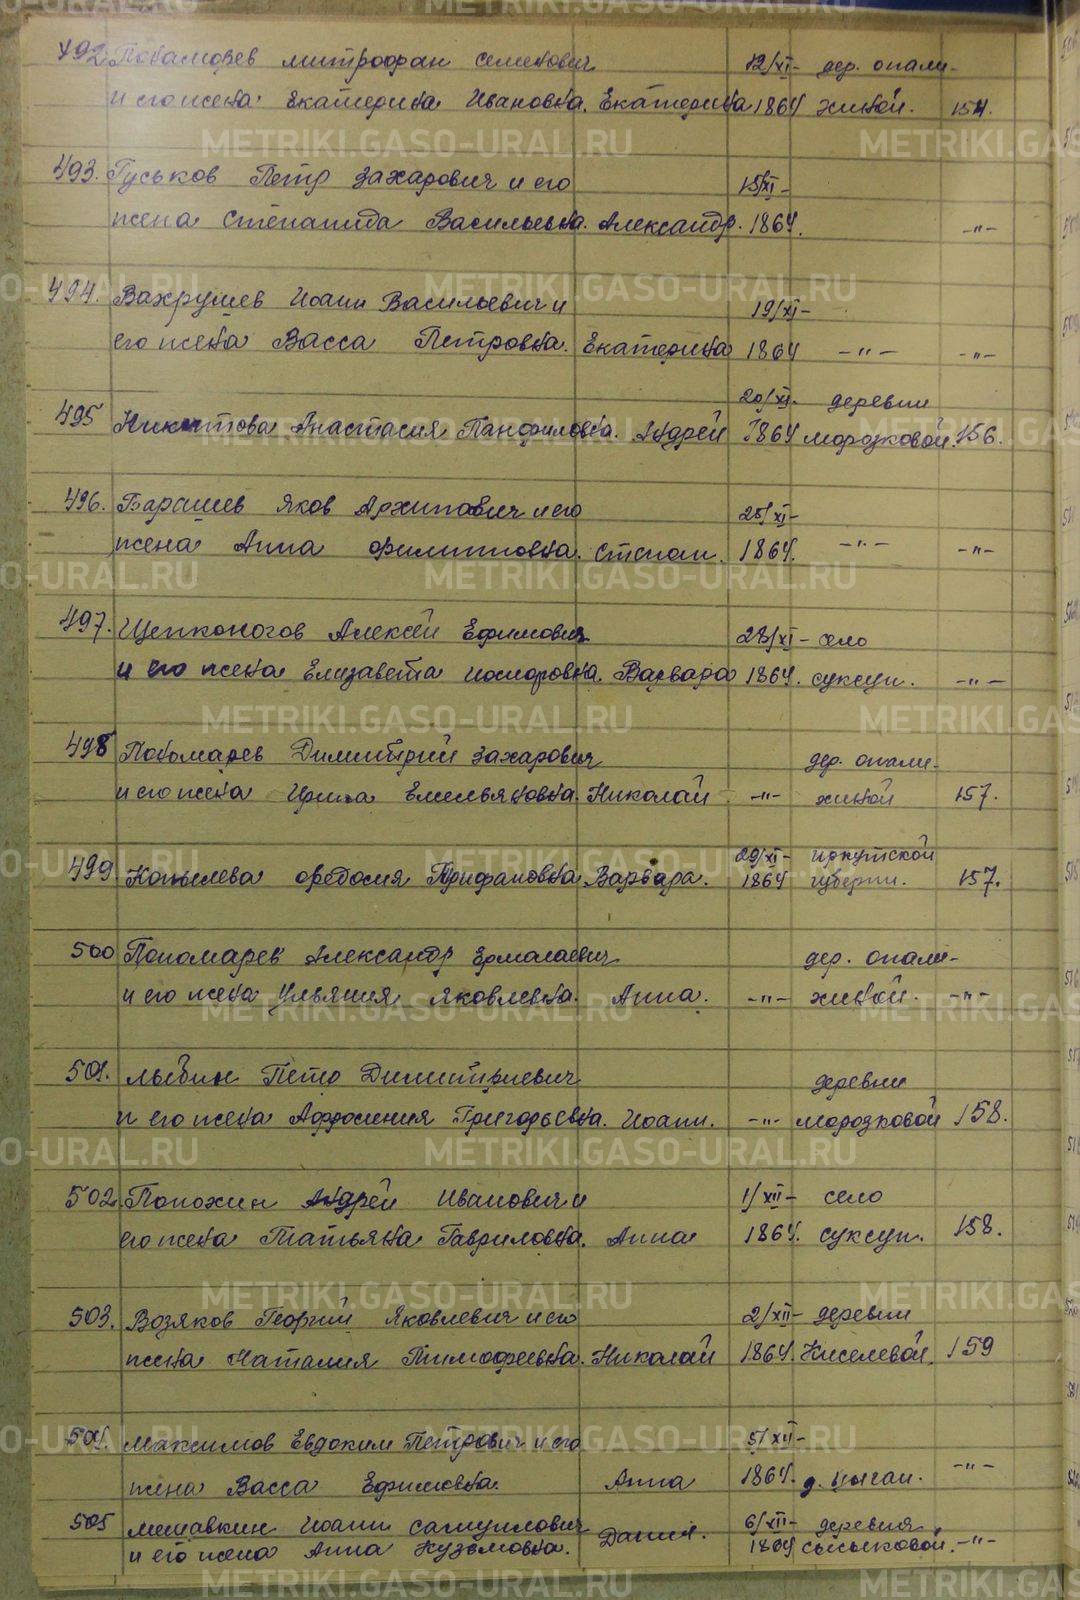 492 Пономарев Митрофан Семенович 12/XI- дер. Опали-
и его жена Екатерина Ивановна. Екатерина 1864 хиной. 154.
493. Гуськов Петр Захарович и его 15/XI-
жена Степанида Васильевна. Александр. 1864. -"-
494. Вахрушев Иоанн Васильевич и 19/XI-
его жена Васса Петровна. Екатерина 1864 -"- -"-
495 Никитова Анастасия Панфиловна. Андрей 20/XI- деревни
1864 Морозковой. 156.
496. Барашев Яков Архипович и его 25/XI-
жена Анна Филипповна. Степан. 1864. -"- -"-
497. Щепконогов Алексей Ефимович 28/XI- село
и его жена Елизавета Исидоровна. Варвара 1864. Суксун. -"-
498 Пономарев Димитрий Захарович дер. Опали-
и его жена Ирина Емельяновна. Николай -"- хиной 157.
499 Копылева Федосия Трифановна Варвара. 29/XI- Иркутской
1864 губерни. 157.
500 Пономарев Александр Ермалаевич дер. Опали-
и его жена Ульяния Яковлевна. Анна. -"- хиной. -"-
501. Лыбин Петр Димитриевич деревни
и его жена Афросиния Григорьевна. Иоанн. -"- Морозковой 158.
502 Попохин Андрей Иванович и 1/XII- село
его жена Татьяна Гавриловна. Анна 1864. Суксун. 158.
503. Возяков Георгий Яковлевич и его 2/XII- деревни
жена Наталия Тимофеевна. Николай 1864. Киселевой. 159
504. Максимов Евдоким Петрович и его 5/XII-
жена Васса Ефимовна. Анна 1864. д. Цыган. -"-
505 Мишавкин Иоанн Самуилович 6/XII- деревня
и его жена Анна Кузьмовна. Даниил. 1864 Сысыковой. -"-
METRIKI.GASO-URAL.RU